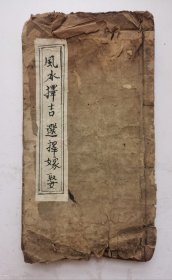 風水擇吉選擇嫁娶